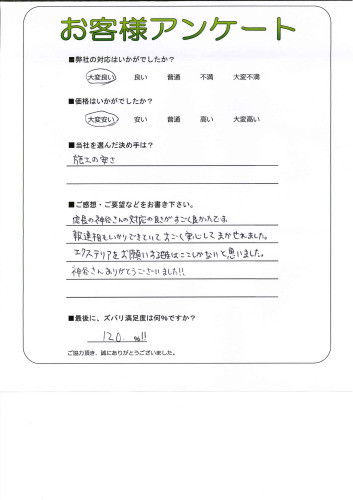 お客様アンケート
■弊社の対応はいかがでしたか？
大変良い 良い 普通 不満 大変不満
■価格はいかがでしたか？
大変安い 安い 普通 高い 大変高い
■当社を選んだ決め手は？
施工の安さ
■ご感想・ご要望などをお書き下さい。
店長の神谷さんの対応の良さがすごく良かったです。
報連相もしっかりできていてすごく安心してまかせれました。
エクステリアをお願いする時はここしかないと思いました。
神谷さんありがとうございました!!
■最後に、ズバリ満足度は何%ですか？
120 %!!
ご協力頂き、誠にありがとうございました。